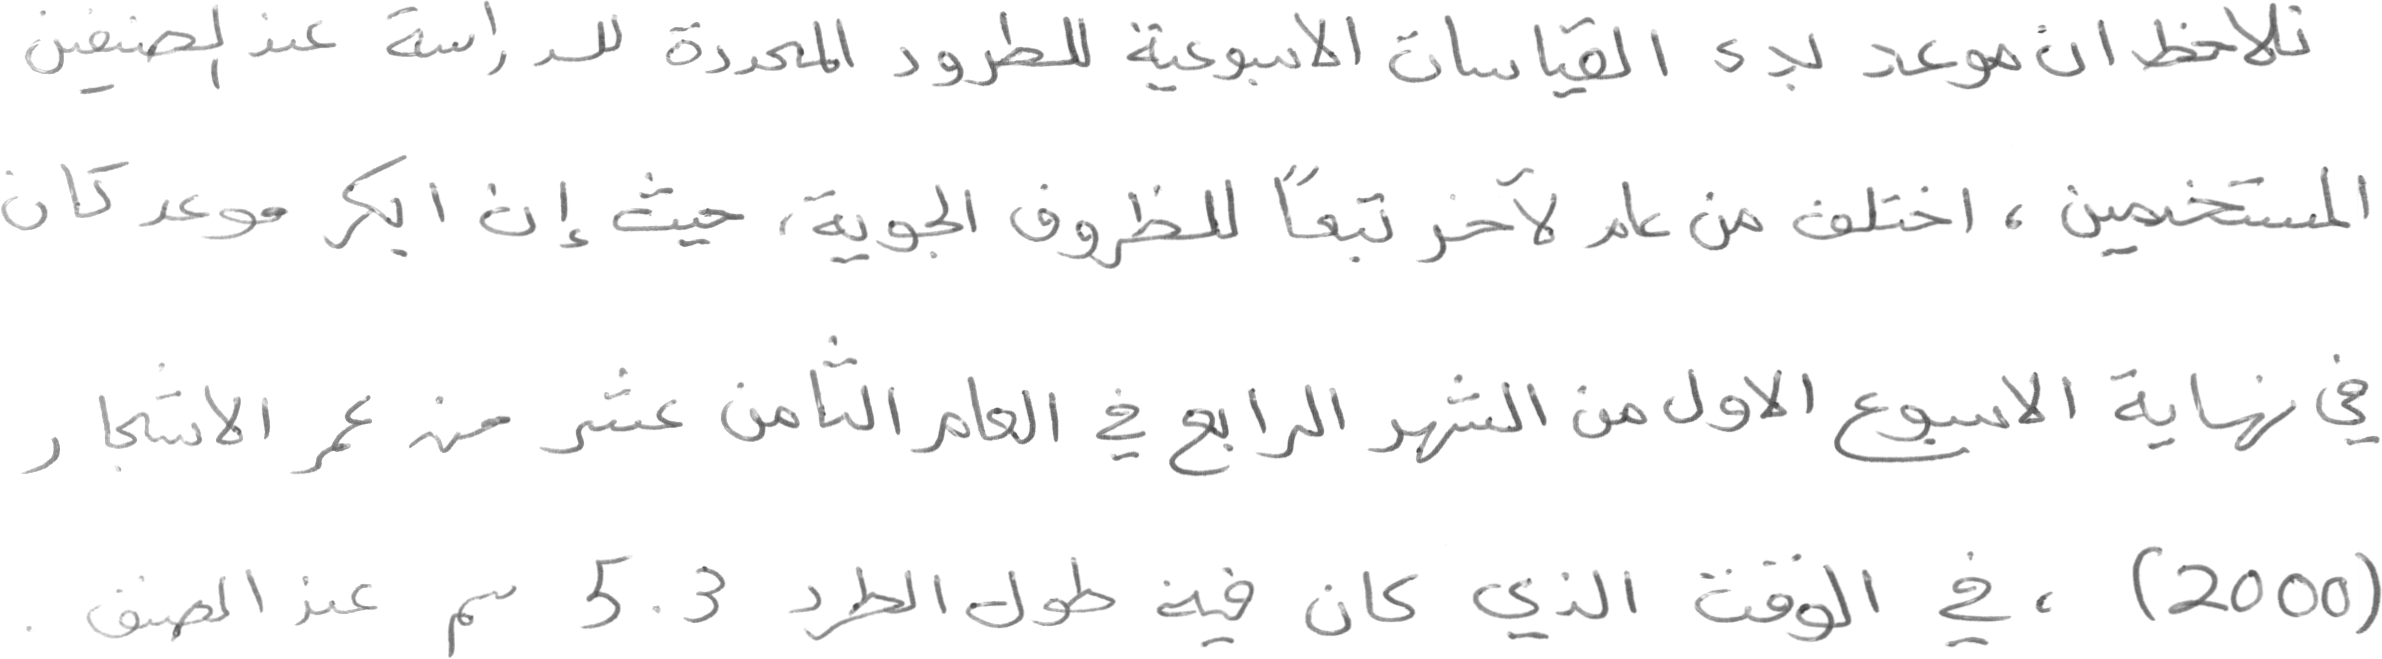 نلاحظ ان موعد بدء القياسات الاسبوعية للطرود المحددة للدراسة عند الصنفين
المستخدمين ، اختلف من عام لآخر تبعاً للظروف الجوية، حيث إن ابكر موعد كان
في نهاية الاسبوع الاول من الشهر الرابع في العام الثامن عشر من عمر الاشجار
(2000) ، في الوقت الذي كان فيه طول الطرد 5.3 سم عند الصنف .